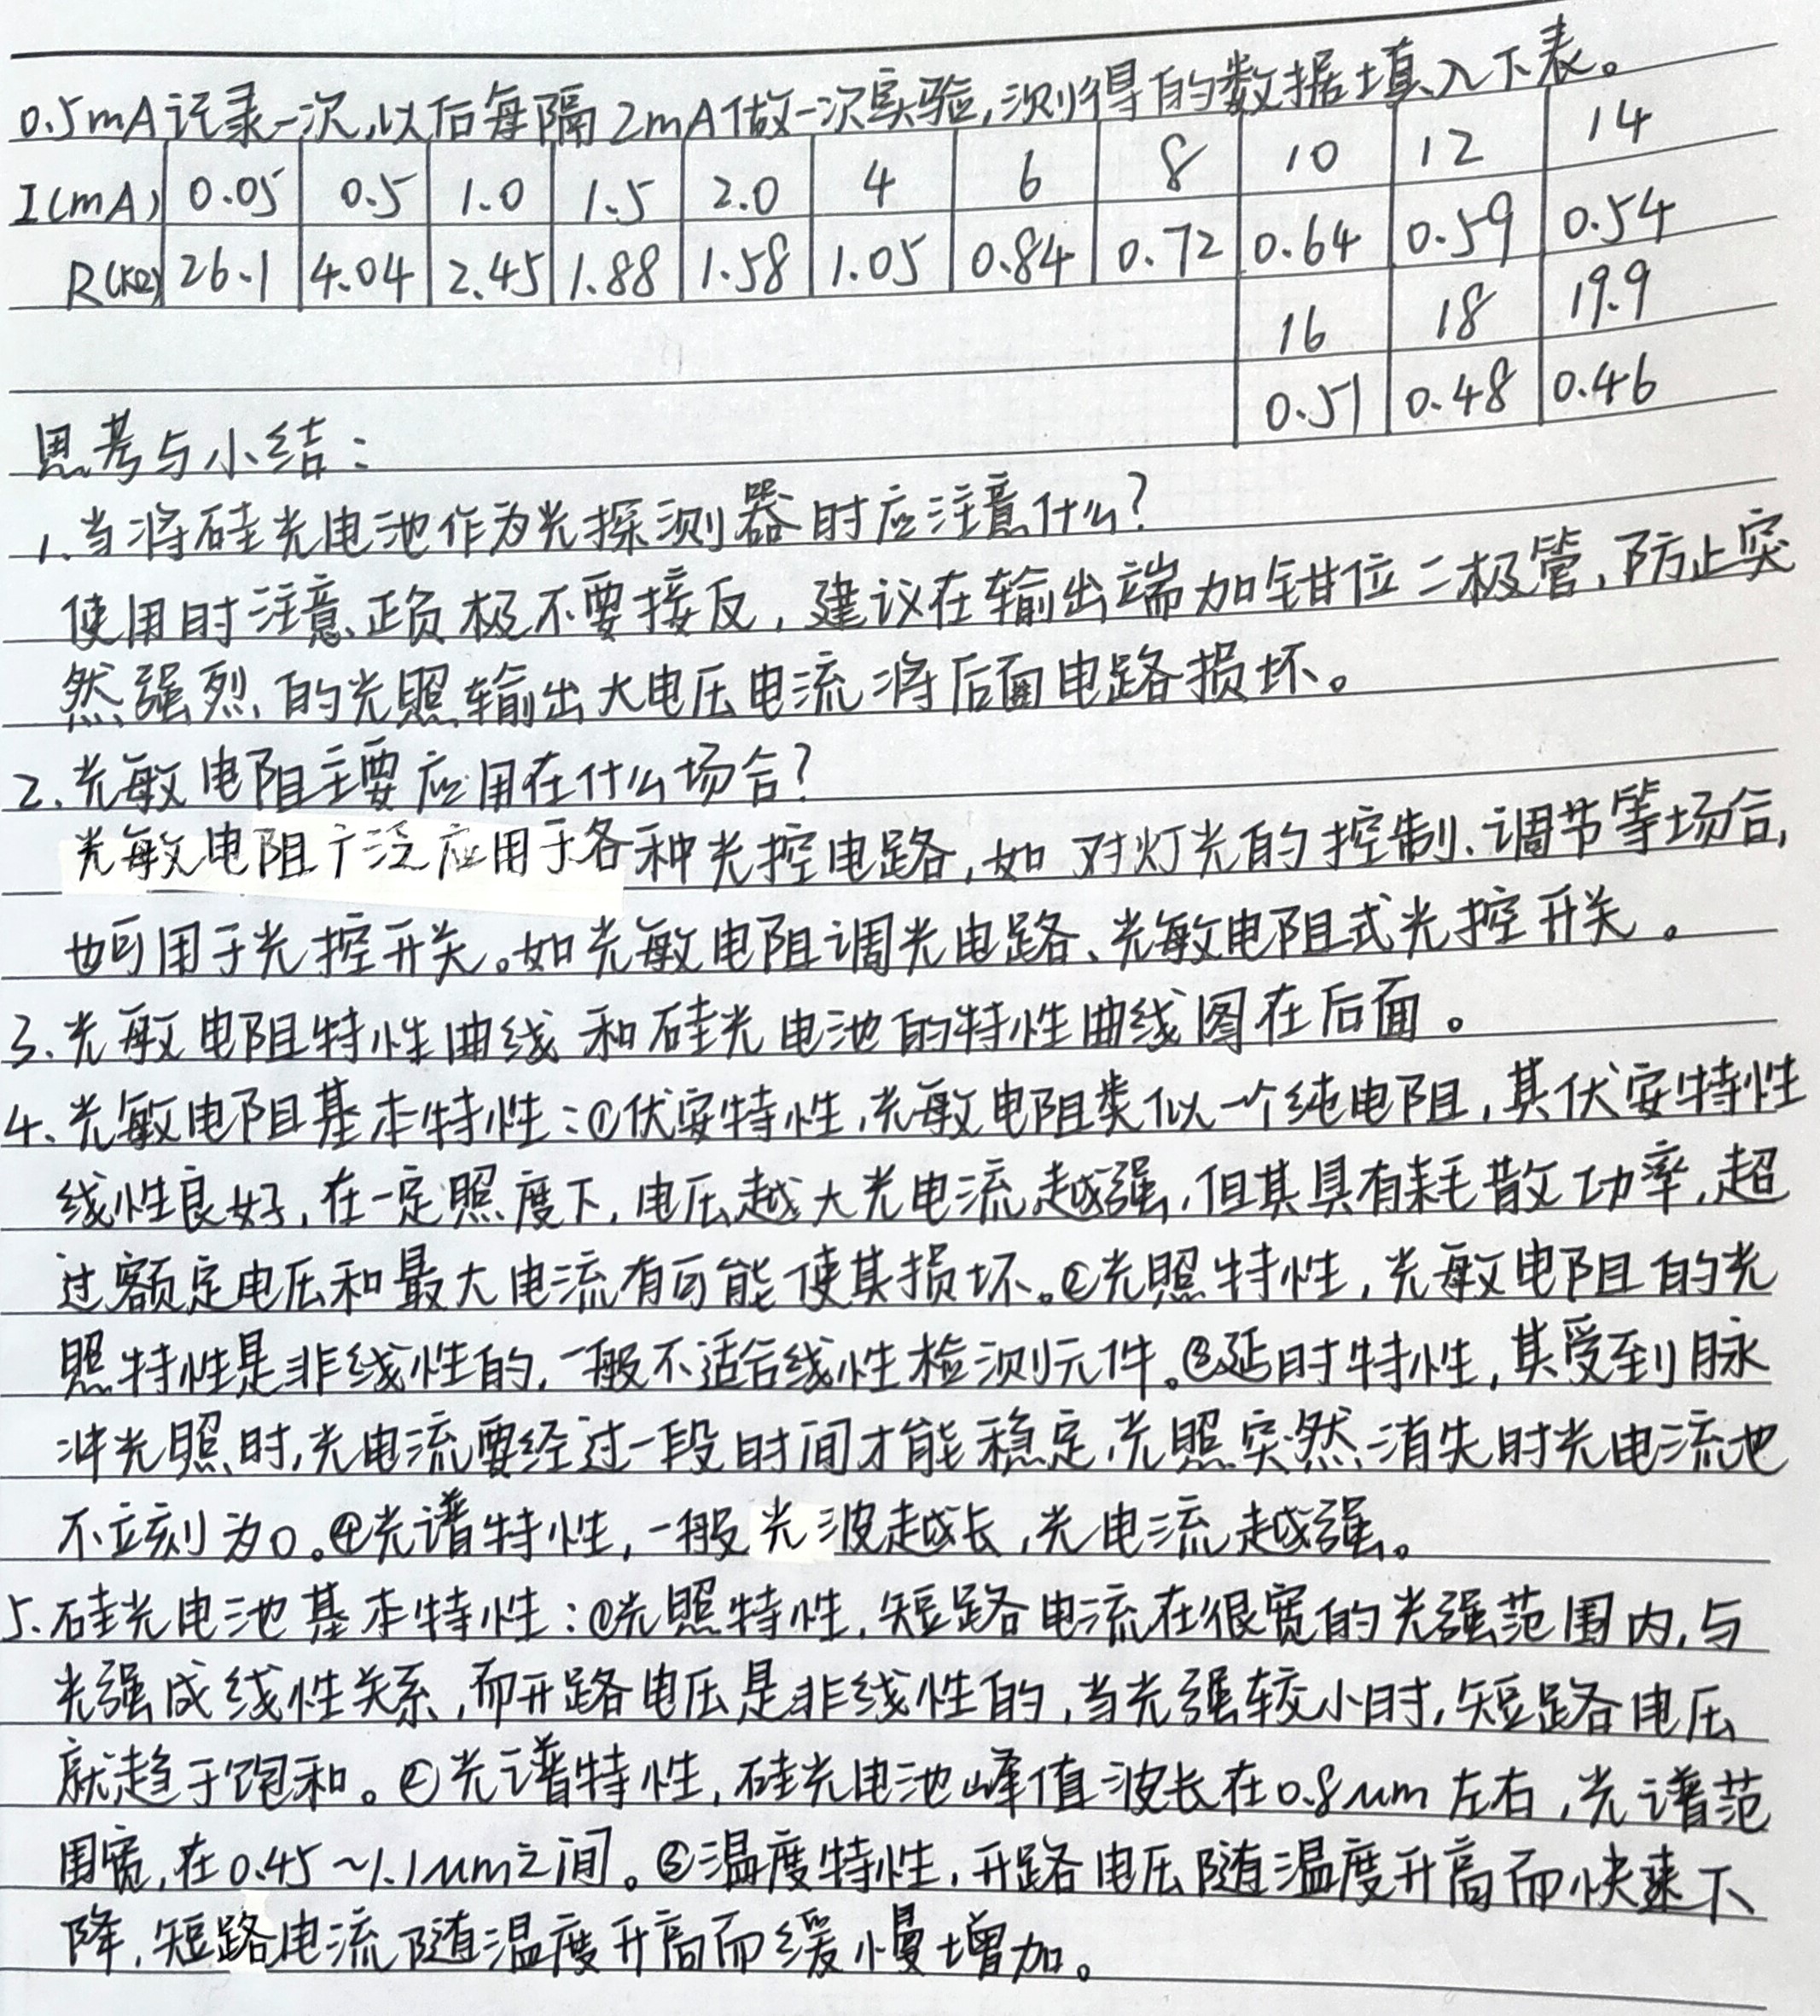 0.5mA记录一次,以后每隔2mA做一次实验,测得的数据填入下表。
I(mA) 0.05 0.5 1.0 1.5 2.0 4 6 8 10 12 14
R(KΩ) 26.1 4.04 2.45 1.88 1.58 1.05 0.84 0.72 0.64 0.59 0.54
16 18 19.9
0.51 0.48 0.46
思考与小结:
1.当将硅光电池作为光探测器时应注意什么?
使用时注意正负极不要接反,建议在输出端加钳位二极管,防止突
然强烈的光照输出大电压电流将后面电路损坏。
2.光敏电阻主要应用在什么场合?
光敏电阻广泛应用于各种光控电路,如对灯光的控制、调节等场合,
也可用于光控开关。如光敏电阻调光电路、光敏电阻式光控开关。
3.光敏电阻特性曲线和硅光电池的特性曲线图在后面。
4.光敏电阻基本特性:①伏安特性,光敏电阻类似一个纯电阻,其伏安特性
线性良好,在一定照度下,电压越大光电流越强,但其具有耗散功率,超
过额定电压和最大电流有可能使其损坏。②光照特性,光敏电阻的光
照特性是非线性的,一般不适合线性检测元件。③延时特性,其受到脉
冲光照时,光电流要经过一段时间才能稳定,光照突然消失时光电流也
不立刻为0。④光谱特性,一般光波越长,光电流越强。
5.硅光电池基本特性:①光照特性,短路电流在很宽的光强范围内,与
光强成线性关系,而开路电压是非线性的,当光强较小时,短路电压
就趋于饱和。②光谱特性,硅光电池峰值波长在0.8μm左右,光谱范
围宽,在0.45~1.1μm之间。③温度特性,开路电压随温度升高而快速下
降,短路电流随温度升高而缓慢增加。